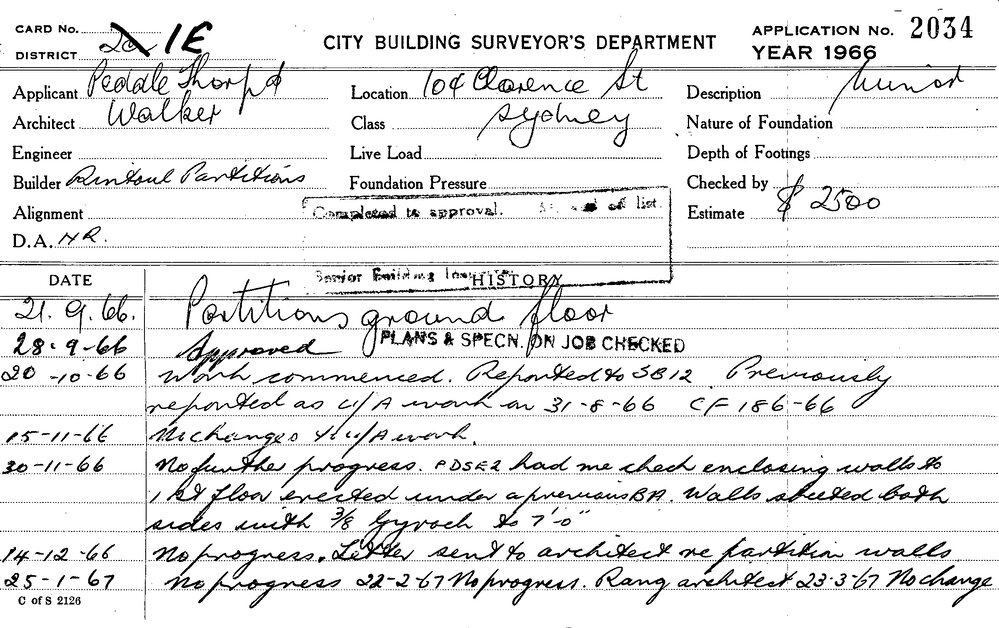 CARD No. 20 1E
DISTRICT
CITY BUILDING SURVEYOR'S DEPARTMENT
APPLICATION No. 2034
YEAR 1966
Applicant Peddle Thorp &
Architect Walker
Engineer
Builder Rintoul Partitions
Alignment
D.A. NR.
Location 104 Clarence St
Class Sydney
Live Load
Foundation Pressure
Completed to approval. of list.
Senior Building
Description Minor
Nature of Foundation
Depth of Footings
Checked by
Estimate $ 2500
DATE HISTORY
21.9.66. Partitions ground floor
28-9-66 Approved PLANS & SPECN. ON JOB CHECKED
20-10-66 Work commenced. Reported to SB12 Previously
reported as U/A work on 31-8-66 CF 186-66
15-11-66 No changes U/A work.
30-11-66 No further progress. PDSE2 had me check enclosing walls to
1st floor erected under a previous BA. Walls sheeted both
sides with 3/8 Gyprock to 7'-0"
14-12-66 No progress. Letter sent to architect re partition walls
25-1-67 No progress 22-2-67 No progress. Rang architect 23-3-67 No change
C of S 2126